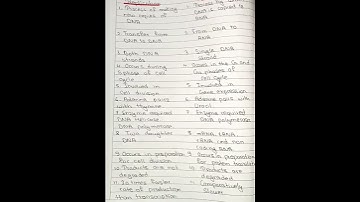 1. Process of making
new copies of
DNA
is copied to
RNA
2. Transfer from
DNA to DNA
2. From DNA to
RNA
3. Both DNA
strands
3. Single DNA
4. Occurs during
S phase of cell
cycle
4. Occurs in the G1 and
G2 phases of
cell cycle
5. Involved in
cell division
5. Involved in
Gene expression
6. Adenine pairs
with thymine
6. Adenine pairs with
Uracil
7. Enzyme required
DNA Helicase,
DNA polymerase
7. Enzyme required
RNA polymerase
8. Two daughter
DNA
8. mRNA, tRNA
rRNA and non
coding RNA
9. Occurs in preparation
for cell division
in preparation
for protein
10. Products are not
degraded
10. Products are
degraded
rate of production
than transcription
11. Comparatively
slower